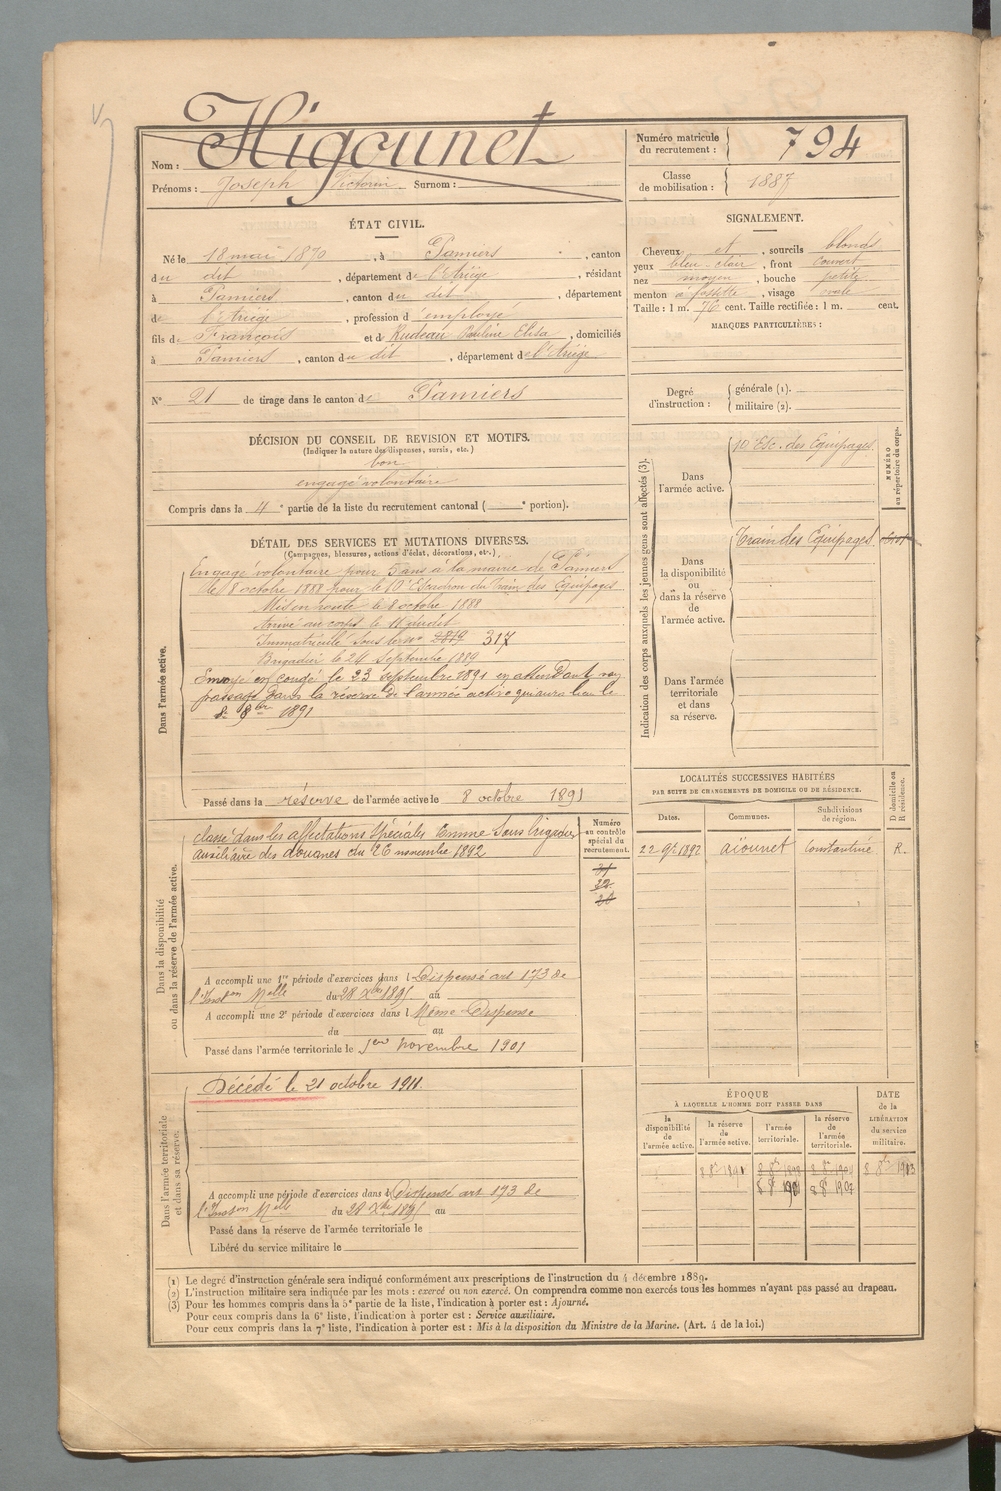 Higounet
Nom :
Prénoms : Joseph Victorin Surnom :
Numéro matricule du recrutement : 794
Classe de mobilisation : 1887
ÉTAT CIVIL.
Né le 18 mai 1870, à Pamiers, canton
du dit, département de l'Ariège, résidant
à Pamiers, canton du dit, département
de l'Ariège, profession d'employé
fils de François et de Rudeau Pauline Elisa, domiciliés
à Pamiers, canton du dit, département de l'Ariège
N° 21 de tirage dans le canton de Pamiers
SIGNALEMENT.
Cheveux et, sourcils blonds
yeux bleu-clair, front couvert
nez moyen, bouche petite
menton à fossette, visage ovale
Taille : 1 m. 76 cent. Taille rectifiée : 1 m. cent.
MARQUES PARTICULIÈRES :
Degré d'instruction : générale (1).
militaire (2).
DÉCISION DU CONSEIL DE REVISION ET MOTIFS.
(Indiquer la nature des dispenses, sursis, etc.)
bon
engagé volontaire
Compris dans la 4e partie de la liste du recrutement cantonal ( e portion).
DÉTAIL DES SERVICES ET MUTATIONS DIVERSES.
(Campagnes, blessures, actions d'éclat, décorations, etc.)
Dans l'armée active.
Engagé volontaire pour 5 ans à la mairie de
le 8 octobre 1888 pour le 10e Escadron du Train des Equipages
Mis en route le 8 octobre 1888
Arrivé au corps le 11 dudit
Immatriculé sous le no 317
Brigadier le 24 septembre 1889
Envoyé en congé le 23 septembre 1891 en attendant son
passage dans la réserve de l'armée active qui aura lieu le
8bre 1891
Passé dans la réserve de l'armée active le 8 octobre 1891
Indication des corps auxquels les jeunes gens sont affectés (3).
NUMÉRO au répertoire du corps.
Dans l'armée active.
10 Esc. des Equipages
Dans la disponibilité ou dans la réserve de l'armée active.
Train des Equipages
Dans l'armée territoriale et dans sa réserve.
LOCALITÉS SUCCESSIVES HABITÉES
PAR SUITE DE CHANGEMENTS DE DOMICILE OU DE RÉSIDENCE.
Dates. Communes. Subdivisions de région. D domicile ou R résidence.
22 9bre 1892 Aïounet Constantine R.
Dans la disponibilité ou dans la réserve de l'armée active.
Numéro au contrôle spécial du recrutement.
classé dans les affectations spéciales comme sous brigadier
auxiliaire des douanes du 26 novembre 1892
A accompli une 1re période d'exercices dans l Dispensé art 173 de
l'Inston Mlle du 28 Xbre 1895 au
A accompli une 2e période d'exercices dans l Même Dispense
du au
Passé dans l'armée territoriale le 1er novembre 1901
Dans l'armée territoriale et dans sa réserve.
Décédé le 21 octobre 1911.
A accompli une période d'exercices dans l Dispensé art 193 de
l'Inston Mlle du 28 Xbre 1895 au
Passé dans la réserve de l'armée territoriale le
Libéré du service militaire le
ÉPOQUE
À LAQUELLE L'HOMME DOIT PASSER DANS
DATE de la LIBÉRATION du service militaire.
la disponibilité de l'armée active. la réserve de l'armée active. l'armée territoriale. la réserve de l'armée territoriale.
8 8bre 1891 8 8bre 1898 8 8bre 1904 8 8bre 1913
8 8bre 1901 8 8bre 1907
(1) Le degré d'instruction générale sera indiqué conformément aux prescriptions de l'instruction du 4 décembre 1889.
(2) L'instruction militaire sera indiquée par les mots : exercé ou non exercé. On comprendra comme non exercés tous les hommes n'ayant pas passé au drapeau.
(3) Pour les hommes compris dans la 5e partie de la liste, l'indication à porter est : Ajourné.
Pour ceux compris dans la 6e liste, l'indication à porter est : Service auxiliaire.
Pour ceux compris dans la 7e liste, l'indication à porter est : Mis à la disposition du Ministre de la Marine. (Art. 4 de la loi.)